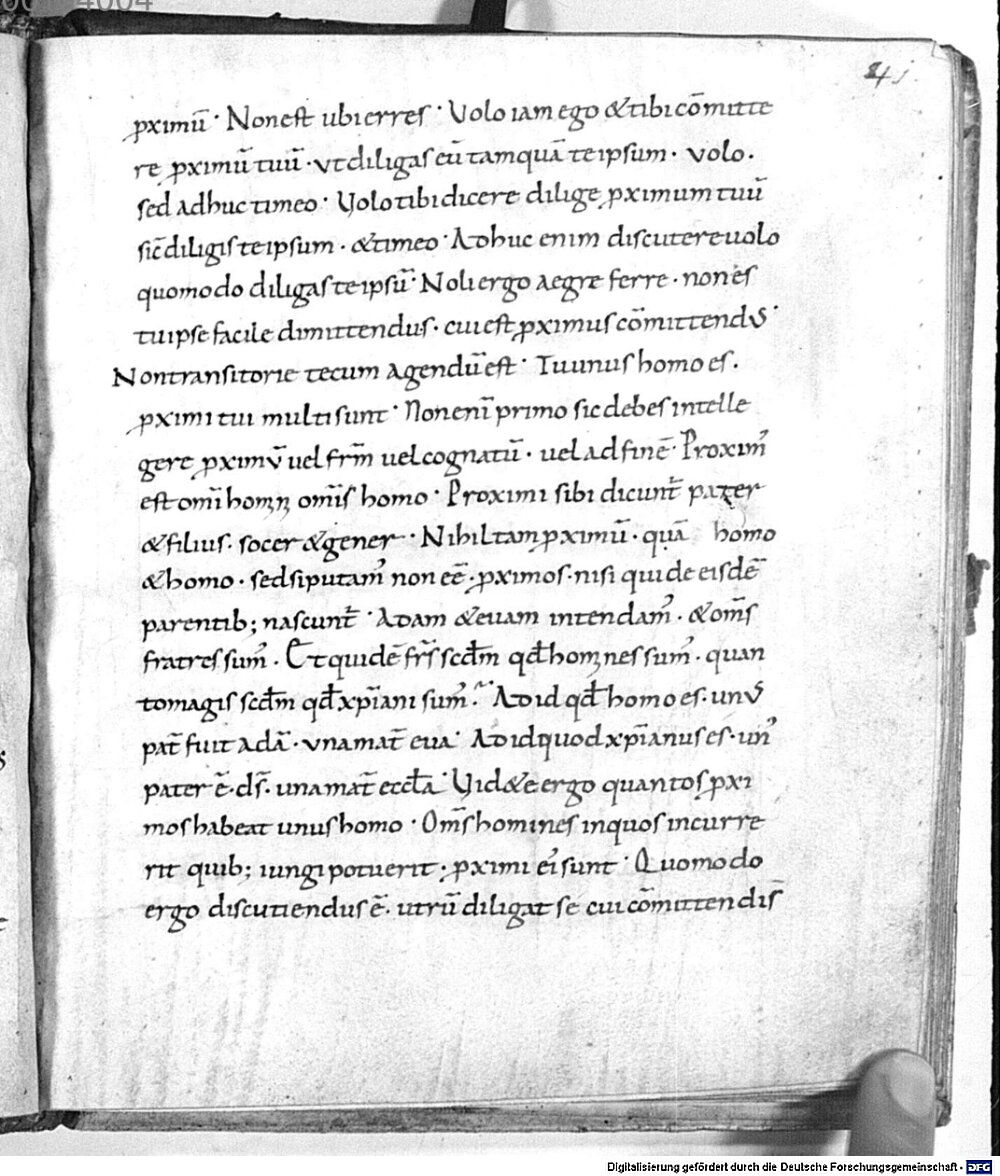 41
ꝓximū · Non est ubi erres · Volo iam ego & tibi cōmitte
re ꝓximū tuū · ut diligas eū tamquā te ipsum · volo ·
sed adhuc timeo · Volo tibi dicere dilige ꝓximum tuū
sic̄ diligis te ipsum · & timeo · Adhuc enim discutere uolo
quomodo diligas te ipsū · Noli ergo aegre ferre · non es
tu ipse facile dimittendus · cui est ꝓximus cōmittendus ·
Non transitorie tecum agendū est · Tu unus homo es ·
ꝓximi tui multi sunt · Non enī primo sic debes intelle
gere ꝓximū uel fr̄m uel cognatū · uel adfinē · Proxim᾿
est omī homini om̄is homo · Proximi sibi dicunt̄ pater
& filius · socer & gener · Nihil tam ꝓximū · quā homo
& homo · sed si putam᾿ non eē · ꝓximos · nisi qui de eisdē
parentib; nascunt̄ · Adam & euam intendam᾿ · & om̄s
fratres sum᾿ · Et quidē fr̄s scd̄m qd̄ homines sum᾿ · quan
to magis scd̄m qd̄ xp̄iani sum᾿ · Ad id qd̄ homo es · unus
pat̄ fuit adā · una mat̄ eua · Ad id quod xp̄ianus es · un᾿
pater ē · ds̄ · una mat̄ eccl̄a · Uid&e ergo quantos ꝓxi
mos habeat unus homo · Om̄s homines in quos incurre
rit quib; iungi potuerit · ꝓximi ei᾿ sunt · Quomodo
ergo discutiendus ē · utrū diligat se cui cōmittendi s̄
Digitalisierung gefördert durch die Deutsche Forschungsgemeinschaft - DFG